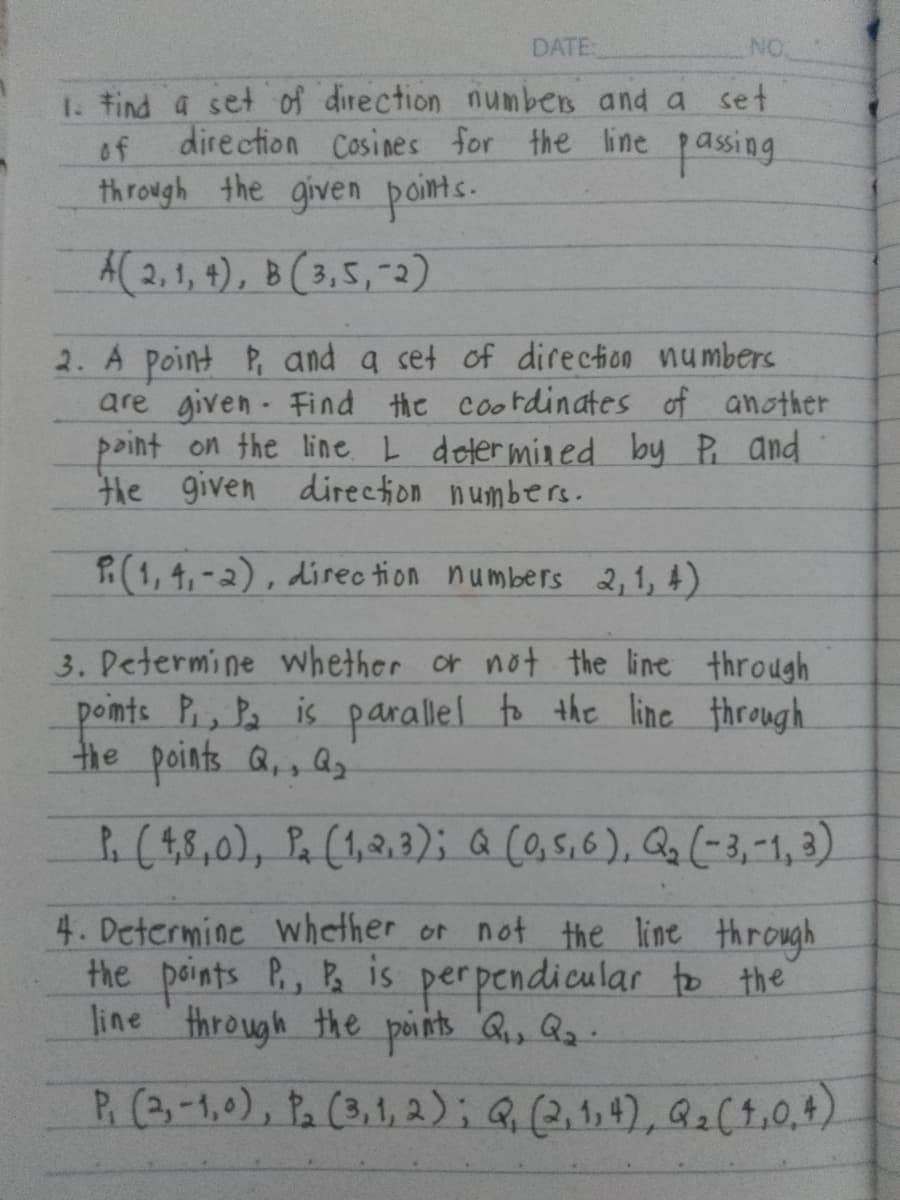 DATE: NO.
1. Find a set of direction numbers and a set
of direction cosines for the line passing
through the given points.
A(2,1,4), B(3,5,-2)
2. A point P₁ and a set of direction numbers
are given. Find the coordinates of another
point on the line L determined by P₁ and
the given direction numbers.
P₁(1,4,-2), direction numbers 2,1,4)
3. Determine whether or not the line through
points P₁, P₂ is parallel to the line through
the points Q₁, Q₂
P₁ (4,8,0), P₂ (1,2,3); Q (0,5,6), Q₂ (-3,-1,3)
4. Determine whether or not the line through
the points P₁, P₂ is perpendicular to the
line through the points Q₁, Q₂.
P₁ (2,-1,0), P₂ (3,1,2); Q₁ (2,1,4), Q₂ (4,0,4)